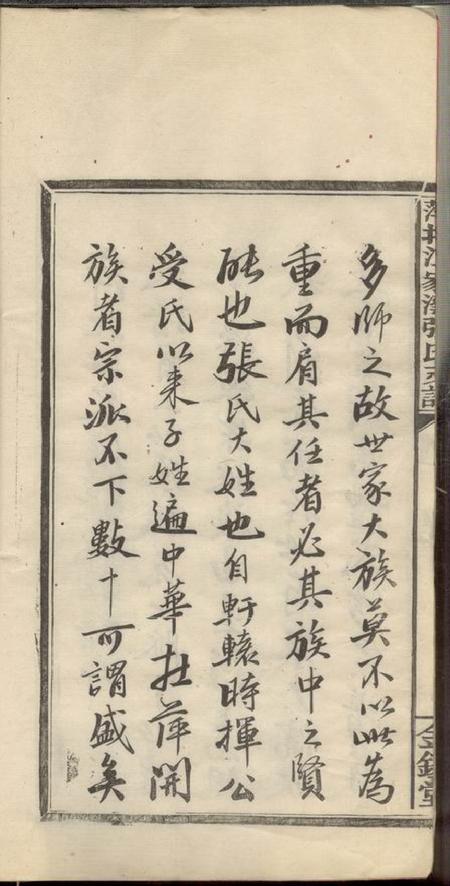 多师之故世家大族莫不以此為
重而肩其任者必其族中之賢
能也張氏大姓也自軒轅時揮公
受氏以来子姓遍中華在萍開
族者宗派不下數十可謂盛矣
張氏